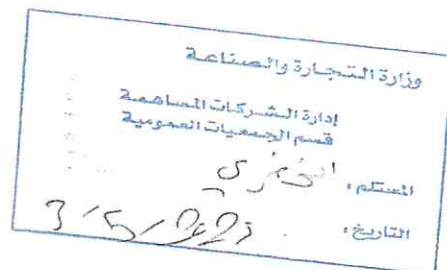 وزارة التجارة والصناعة
إدارة الشركات المساهمة
قسم الجمعيات العمومية
المستلم :
التاريخ : 3/5/2023